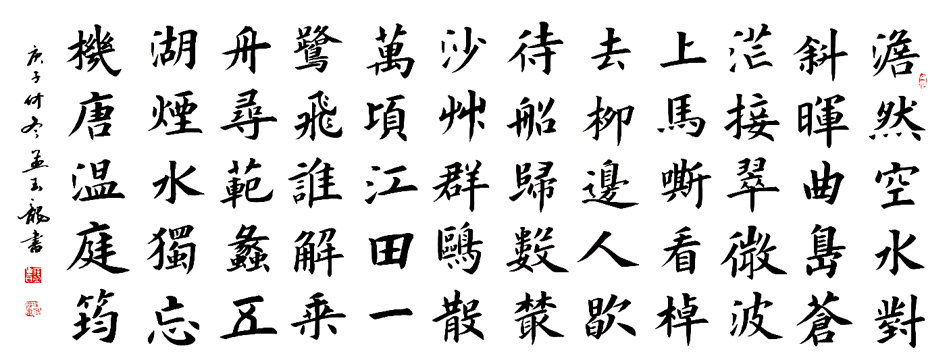 澹然空水對
斜暉曲島蒼
茫接翠微波
上馬嘶看棹
去柳邊人歇
待船歸數叢
沙艸群鷗散
萬頃江田一
鷺飛誰解乗
舟尋範蠡五
湖煙水獨忘
機唐温庭筠
庚子仲冬玉龍書